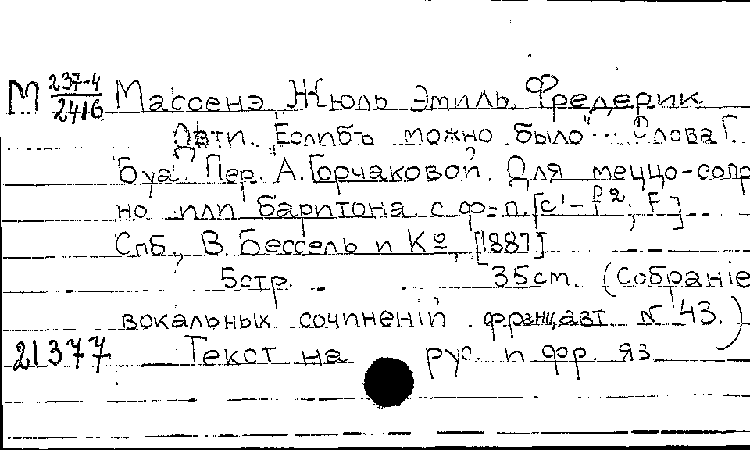 М 237-4/2416 Массенэ, Жюль Эмиль Фредерик
Дѣти. "Еслибъ можно было"... Слова Г.
Буа. Пер. А. Горчаковой. Для меццо-сопра
но или баритона с ф-п. [c'-f²; F]
Спб., В. Бессель и К°, [1887]
5 стр. 35 см. (Собраніе
вокальных сочиненій француз. авт. № 43.)
21377 Текст на рус. и фр. яз.